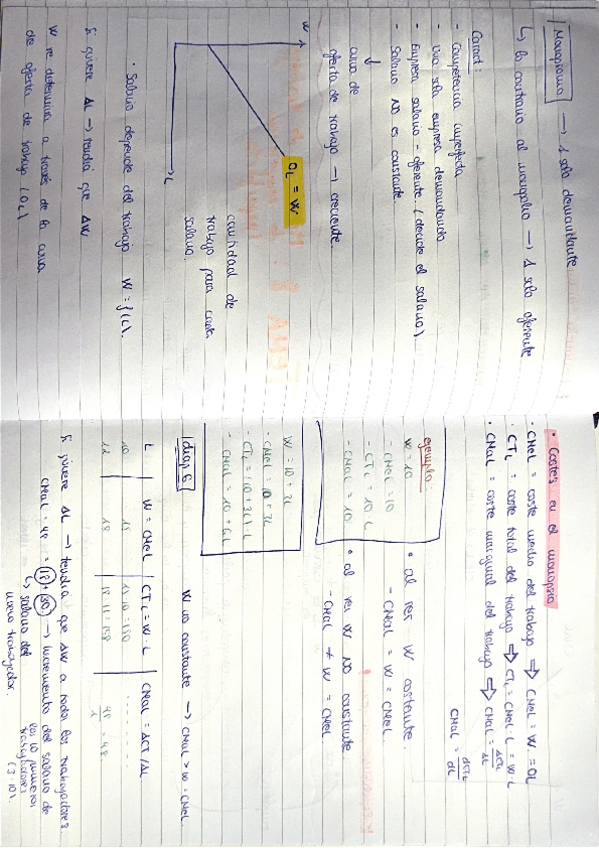 Monopsonio → 1 solo demandante
↳ lo contrario al monopolio → 1 solo oferente
Caract:
- Competencia imperfecta
- Una sola empresa demandando
- Empresa salario-oferente. (decide el salario)
- Salario NO es constante
↓
curva de
oferta de trabajo → creciente.
W
OL = W
L
cantidad de
trabajo para cada
salario.
• Salario depende del trabajo W = f(L).
Si quiere ΔL → tendrá que ΔW
W se determina a través de la curva
de oferta de trabajo (OL)
• Costes en el monopsonio
• CMeL = coste medio del trabajo ⇒ CMeL = W = OL
• CTL = coste total del trabajo ⇒ CTL = CMeL · L = W · L
• CMaL = coste marginal del trabajo ⇒ CMaL = ΔCTL / ΔL
CMaL = dCTL / dL
ejemplo:
W = 10
- CMeL = 10
- CTL = 10 · L
- CMaL = 10
• al ser W constante.
- CMaL = W = CMeL
• al ser W NO constante
- CMaL ≠ W = CMeL
W = 10 + 3L
- CMeL = 10 + 3L
- CTL = (10 + 3L) · L
- CMaL = 10 + 6L
diap. 6
W no constante → CMaL > W = CMeL
L | W = CMeL | CTL = W · L | CMaL = ΔCT / ΔL
10 | 15 | 15 · 10 = 150 | ........
11 | 18 | 18 · 11 = 198 | 48 / 1 = 48
Si quiere ΔL → tendrá que ΔW a todos los trabajadores.
CMaL = 48 = 18 + 30 → incremento del salario de
los 10 primeros
trabajadores
(3 · 10).
↳ salario del
nuevo trabajador.